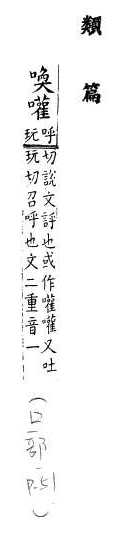 類篇
喚嚾
呼玩切說文評也或作嚾嚾又吐
玩切召呼也文二重音一
(口部 p.51)